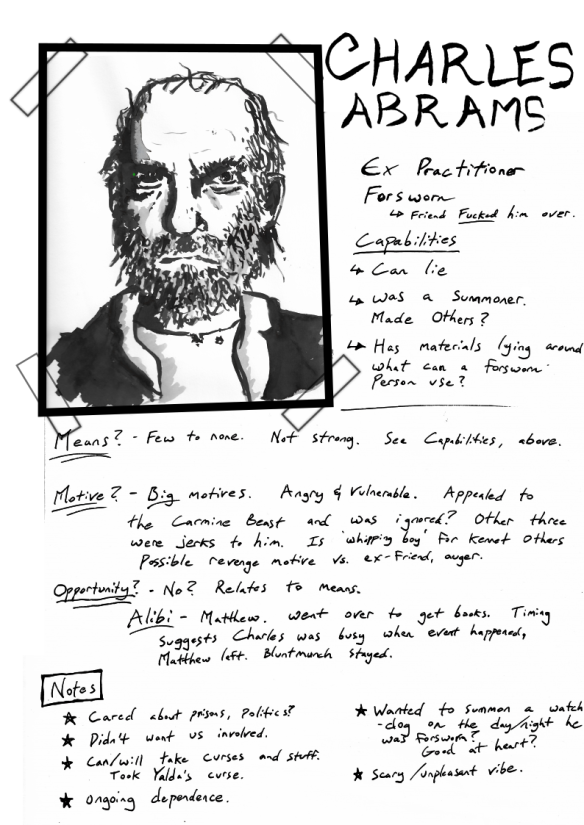 CHARLES
ABRAMS
Ex Practitioner
Forsworn
↳ Friend Fucked him over.
Capabilities
↳ Can lie
↳ Was a Summoner.
Made Others?
↳ Has materials lying around
what can a forsworn
Person use?
Means? - Few to none. Not strong. See Capabilities, above.
Motive? - Big motives. Angry & Vulnerable. Appealed to
the Carmine Beast and was ignored? Other three
were jerks to him. Is 'whipping boy' for Kennet Others
Possible revenge motive vs. ex-Friend, auger.
Opportunity? - No? Relates to means.
Alibi - Matthew. Went over to get books. Timing
suggests Charles was busy when event happened,
Matthew left. Bluntmunch stayed.
Notes
★ Cared about prisons, Politics?
★ Didn't want us involved.
★ Can/will take curses and stuff.
Took Yalda's curse.
★ Ongoing dependence.
★ Wanted to summon a watch
-dog on the day/night he
was Forsworn?
Good at heart?
★ Scary/unpleasant vibe.